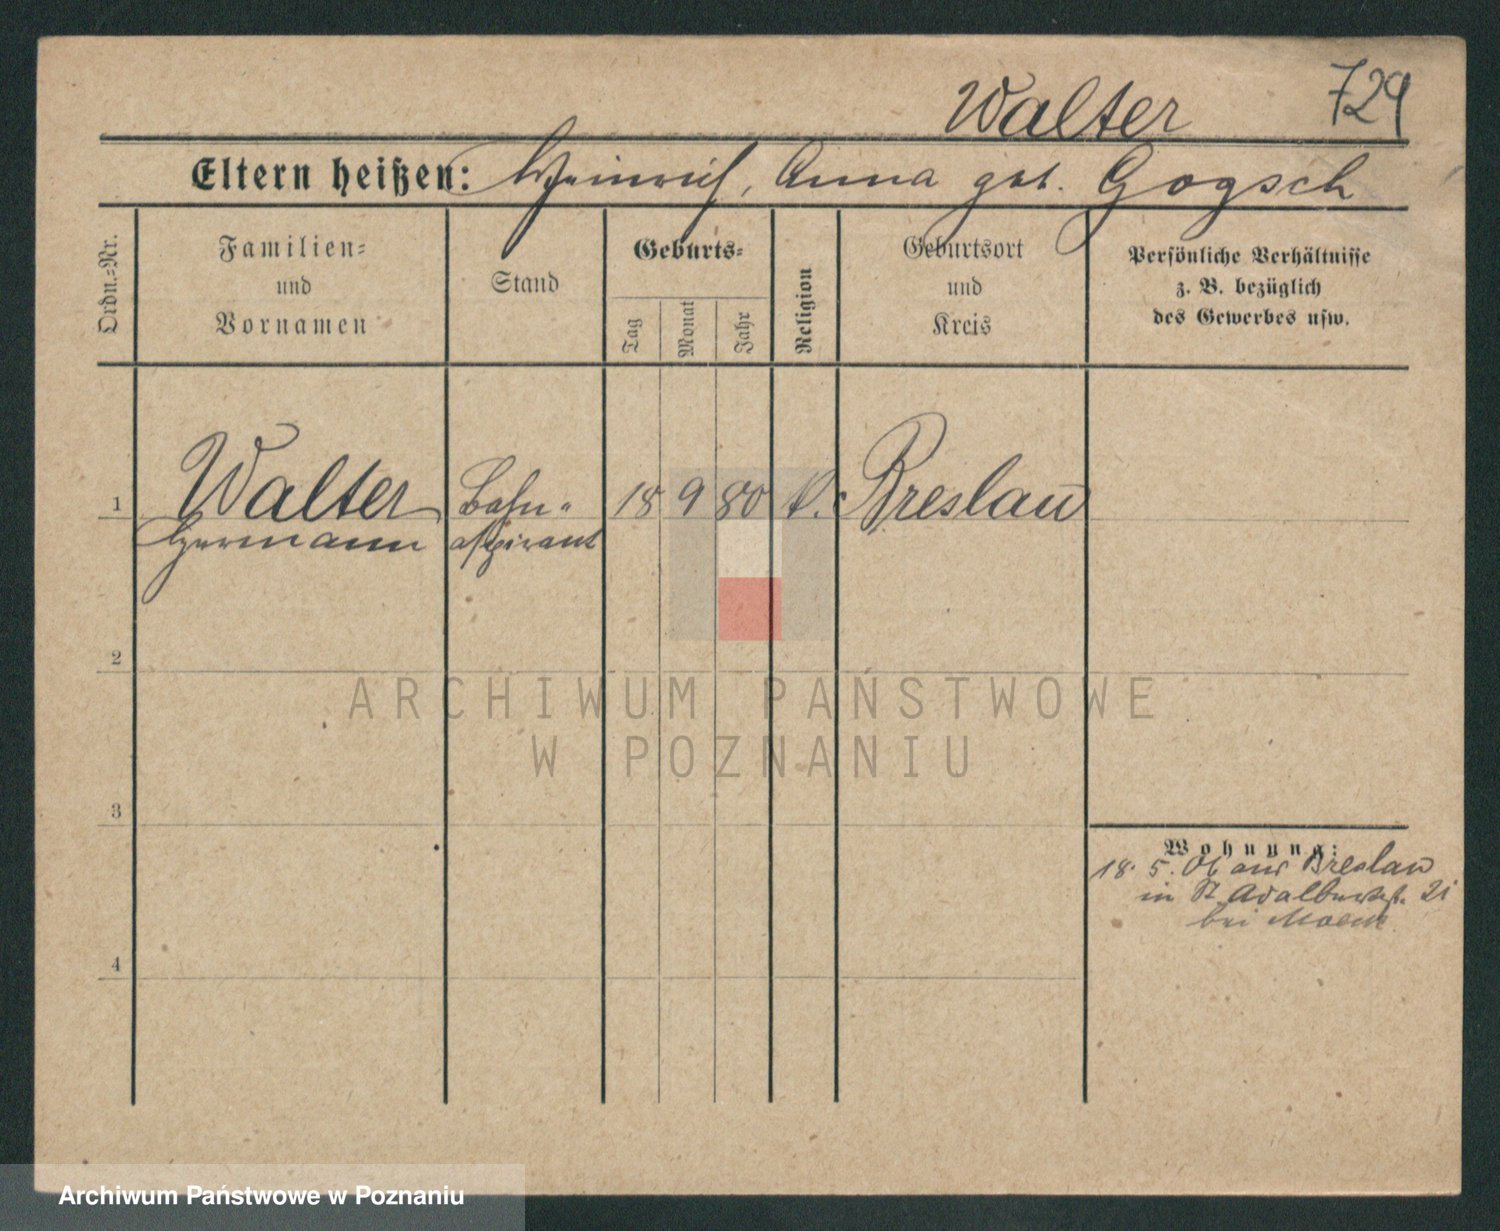 729
Walter
Eltern heißen: Heinrich, Anna geb. Gogsch
Ordn.=Nr.
Familien=
und
Vornamen
Stand
Geburts=
Tag
Monat
Jahr
Religion
Geburtsort
und
Kreis
Persönliche Verhältnisse
z. B. bezüglich
des Gewerbes usw.
1 Walter Bahn= 18 9 80 k. Breslau
Hermann aspirant
2
3
4
Wohnung:
18. 5. 06 aus Breslau
in St. Adalbertstr. 21
bei
ARCHIWUM PAŃSTWOWE
W POZNANIU
Archiwum Państwowe w Poznaniu